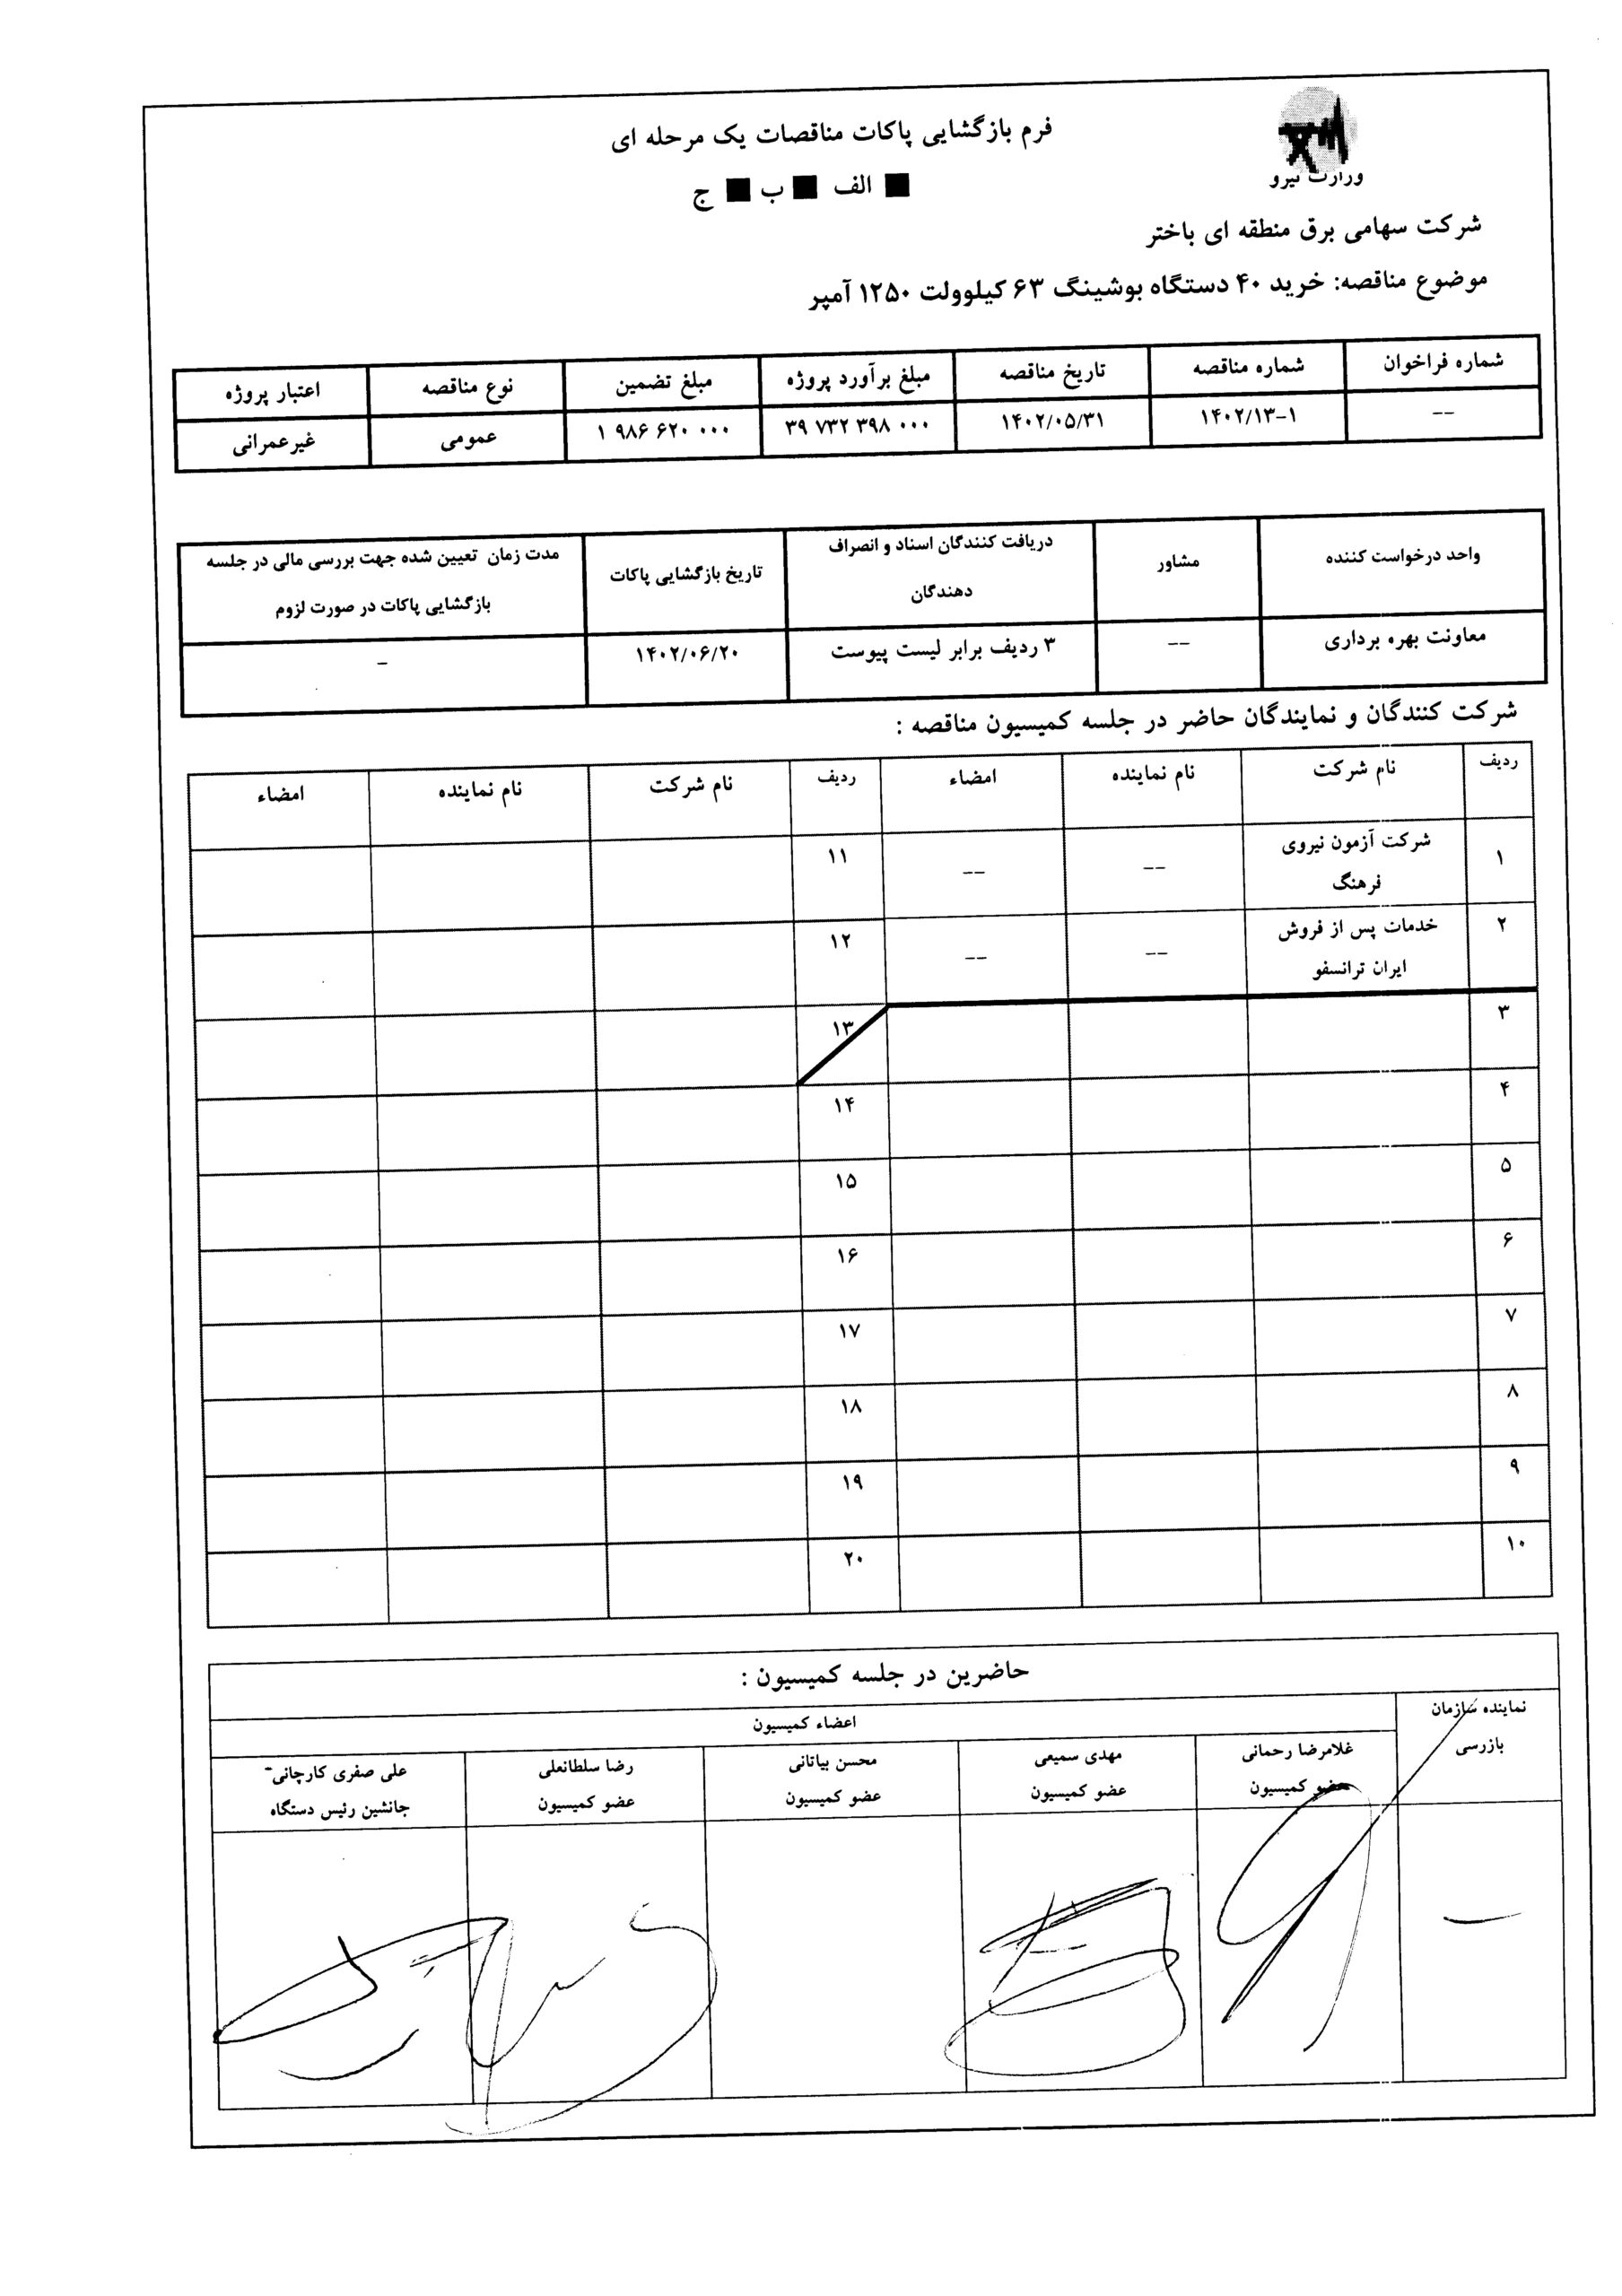 وزارت نیرو
فرم بازگشایی پاکات مناقصات یک مرحله ای
■ الف ■ ب ■ ج
شرکت سهامی برق منطقه ای باختر
موضوع مناقصه: خرید ۴۰ دستگاه بوشینگ ۶۳ کیلوولت ۱۲۵۰ آمپر
شماره فراخوان شماره مناقصه تاریخ مناقصه مبلغ برآورد پروژه مبلغ تضمین نوع مناقصه اعتبار پروژه
-- ۱۴۰۲/۱۳-۱ ۱۴۰۲/۰۵/۳۱ ۳۹ ۷۳۲ ۳۹۸ ۰۰۰ ۱ ۹۸۶ ۶۲۰ ۰۰۰ عمومی غیرعمرانی
واحد درخواست کننده مشاور دریافت کنندگان اسناد و انصراف
دهندگان
تاریخ بازگشایی پاکات
مدت زمان تعیین شده جهت بررسی مالی در جلسه
بازگشایی پاکات در صورت لزوم
معاونت بهره برداری -- ۳ ردیف برابر لیست پیوست ۱۴۰۲/۰۶/۲۰ -
شرکت کنندگان و نمایندگان حاضر در جلسه کمیسیون مناقصه :
ردیف نام شرکت نام نماینده امضاء ردیف نام شرکت نام نماینده امضاء
۱ شرکت آزمون نیروی
فرهنگ
-- -- ۱۱
۲ خدمات پس از فروش
ایران ترانسفو
-- -- ۱۲
۳ ۱۳
۴ ۱۴
۵ ۱۵
۶ ۱۶
۷ ۱۷
۸ ۱۸
۹ ۱۹
۱۰ ۲۰
حاضرین در جلسه کمیسیون :
نماینده سازمان
بازرسی
اعضاء کمیسیون
غلامرضا رحمانی
عضو کمیسیون
مهدی سمیعی
عضو کمیسیون
محسن بیاتانی
عضو کمیسیون
رضا سلطانعلی
عضو کمیسیون
علی صفری کارچانی-
جانشین رئیس دستگاه
-